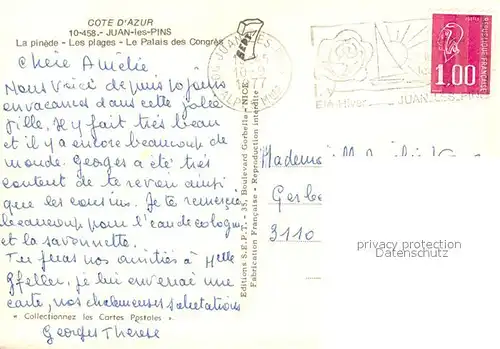 COTE D'AZUR
10-458.- JUAN-les-PINS
La pinède - Les plages - Le Palais des Congrès
Chère Amélie
Nous voici depuis 10 jours
en vacances dans cette jolie
ville. Il y fait très beau
et il y a encore beaucoup de
monde. Georges a été très
content de te revoir ainsi
que les cousins. Je te remercie
beaucoup pour l'eau de cologne
et la savonnette.
Tu feras nos amitiés à Melle
Gfeller, je lui enverrai une
carte, nos chaleureuses salutations
« Collectionnez les Cartes Postales »
Georges Therese
SEPT
Editions S.E.P.T. - 35, Boulevard Gorbella - NICE
Fabrication Française - Reproduction interdite
JUAN LES
1977
JUAN-LES-PINS
REPUBLIQUE FRANÇAISE
1.00
Mademoiselle
Gerbe
3110
privacy protection
Datenschutz